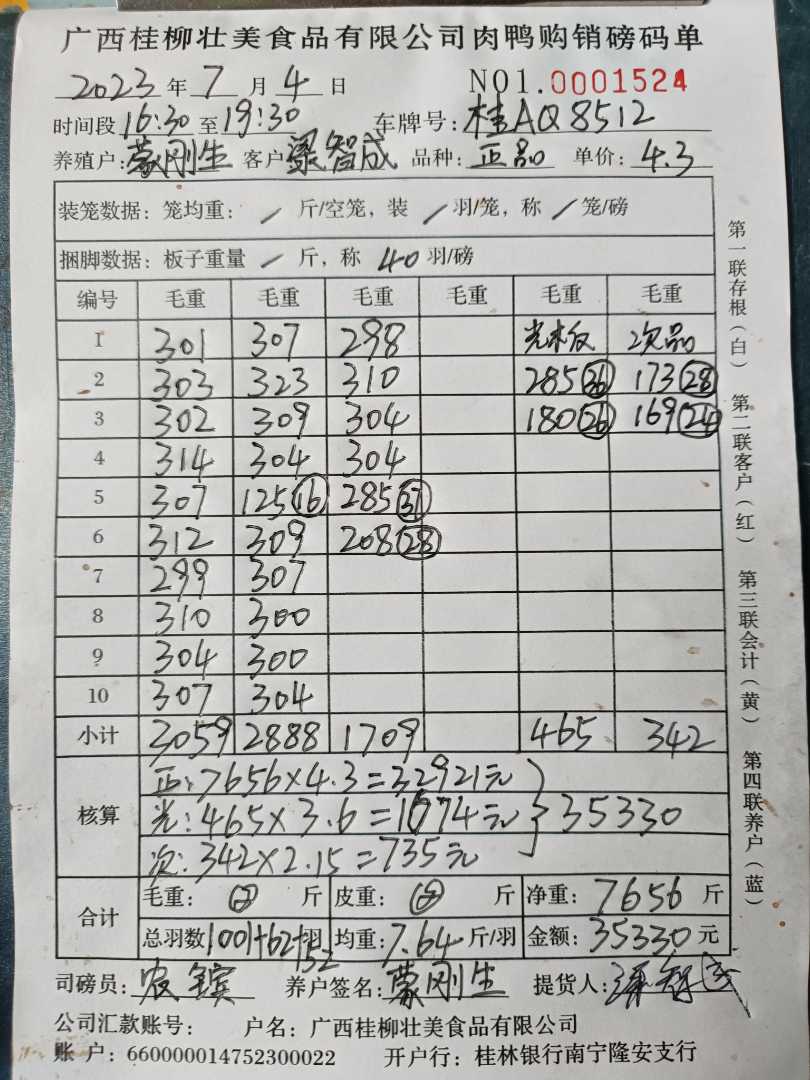 广西桂柳壮美食品有限公司肉鸭购销磅码单
2023 年 7 月 4 日 NO1.0001524
时间段 16:30 至 19:30 车牌号: 桂AQ8512
养殖户: 蒙刚生 客户 梁智成 品种: 正品 单价: 4.3
装笼数据: 笼均重: / 斤/空笼, 装 / 羽/笼, 称 / 笼/磅
捆脚数据: 板子重量 / 斤, 称 40 羽/磅
编号 毛重 毛重 毛重 毛重 毛重 毛重
1 301 307 298 光板 次品
2 303 323 310 285 36 173 28
3 302 309 304 180 26 169 24
4 314 304 304
5 307 125 16 285 37
6 312 309 208 28
7 299 307
8 310 300
9 304 300
10 307 304
小计 3059 2888 1709 465 342
核算 正: 7656×4.3=32921元
光: 465×3.6=1674元 } 35330
次: 342×2.15=735元
合计 毛重: 斤 皮重: 斤 净重: 7656 斤
总羽数 1001+62+52 羽 均重: 7.64 斤/羽 金额: 35330 元
司磅员: 农镔 养户签名: 蒙刚生 提货人: 梁智成
公司汇款账号: 户名: 广西桂柳壮美食品有限公司
账 户: 660000014752300022 开户行: 桂林银行南宁隆安支行
第一联存根(白) 第二联客户(红) 第三联会计(黄) 第四联养户(蓝)